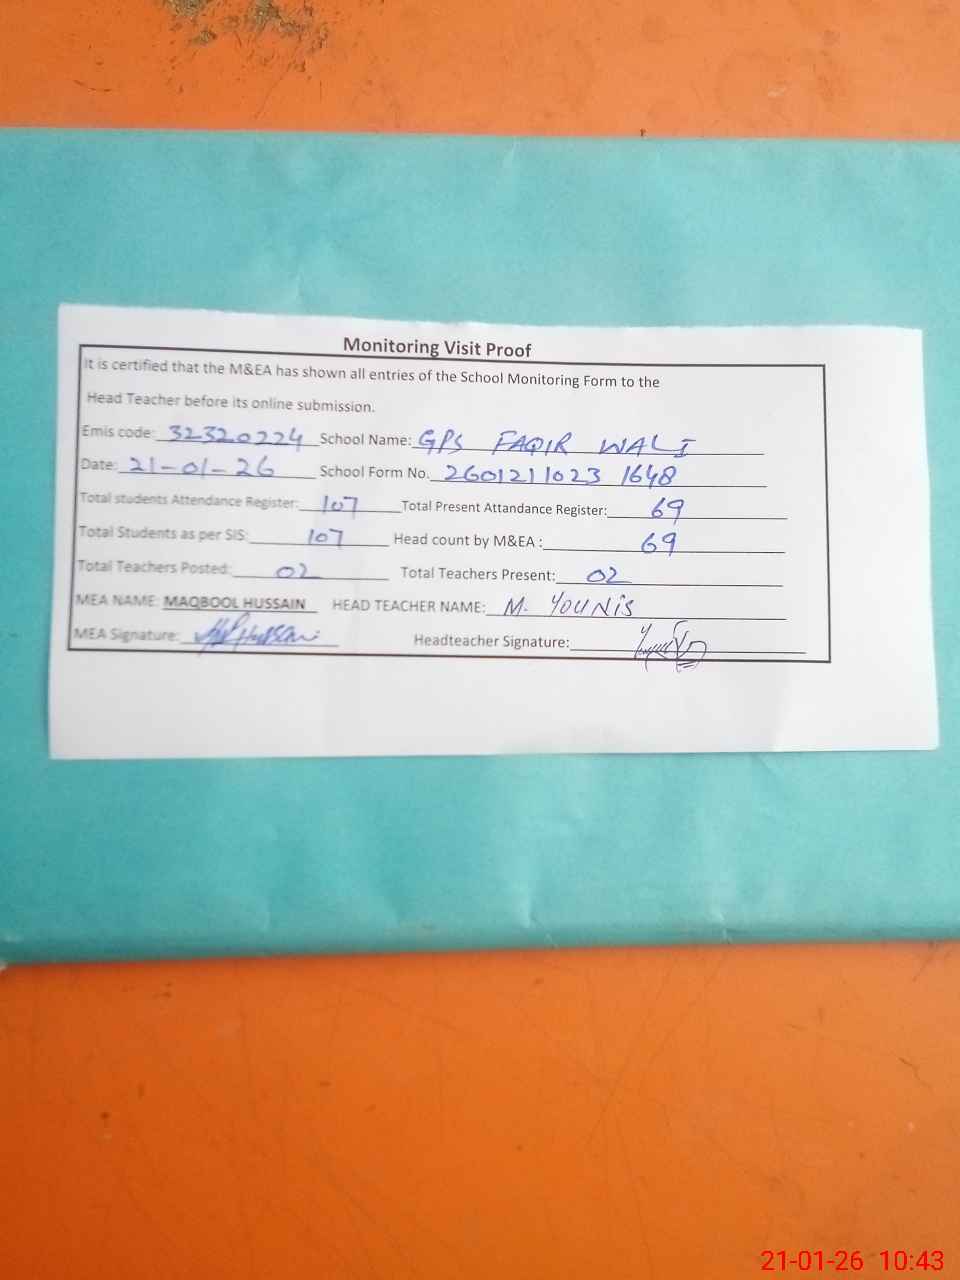 Monitoring Visit Proof
It is certified that the M&EA has shown all entries of the School Monitoring Form to the
Head Teacher before its online submission.
Emis code: 32320224 School Name: GPS FAQIR WALI
Date: 21-01-26 School Form No. 26012110231648
Total students Attendance Register: 107 Total Present Attandance Register: 69
Total Students as per SIS: 107 Head count by M&EA : 69
Total Teachers Posted: 02 Total Teachers Present: 02
MEA NAME: MAQBOOL HUSSAIN HEAD TEACHER NAME: M. YOUNIS
MEA Signature: Headteacher Signature:
21-01-26 10:43